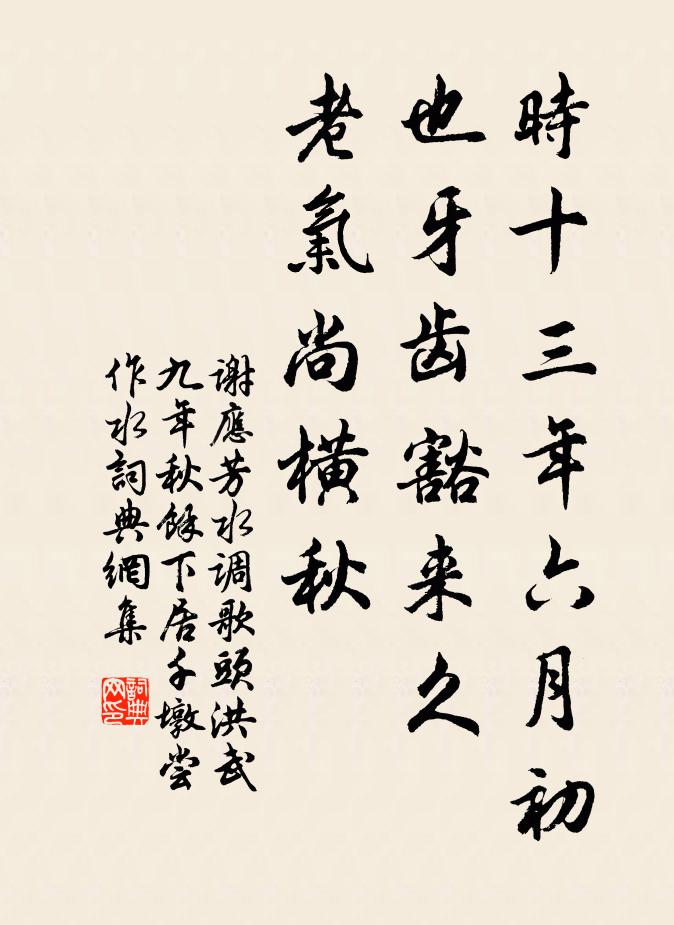 時十三年六月初
也牙齿豁来久
老氣尚橫秋
谢應芳水调歌頭洪武
九年秋餘下居千墩尝
作水詞典網集
詞典网印